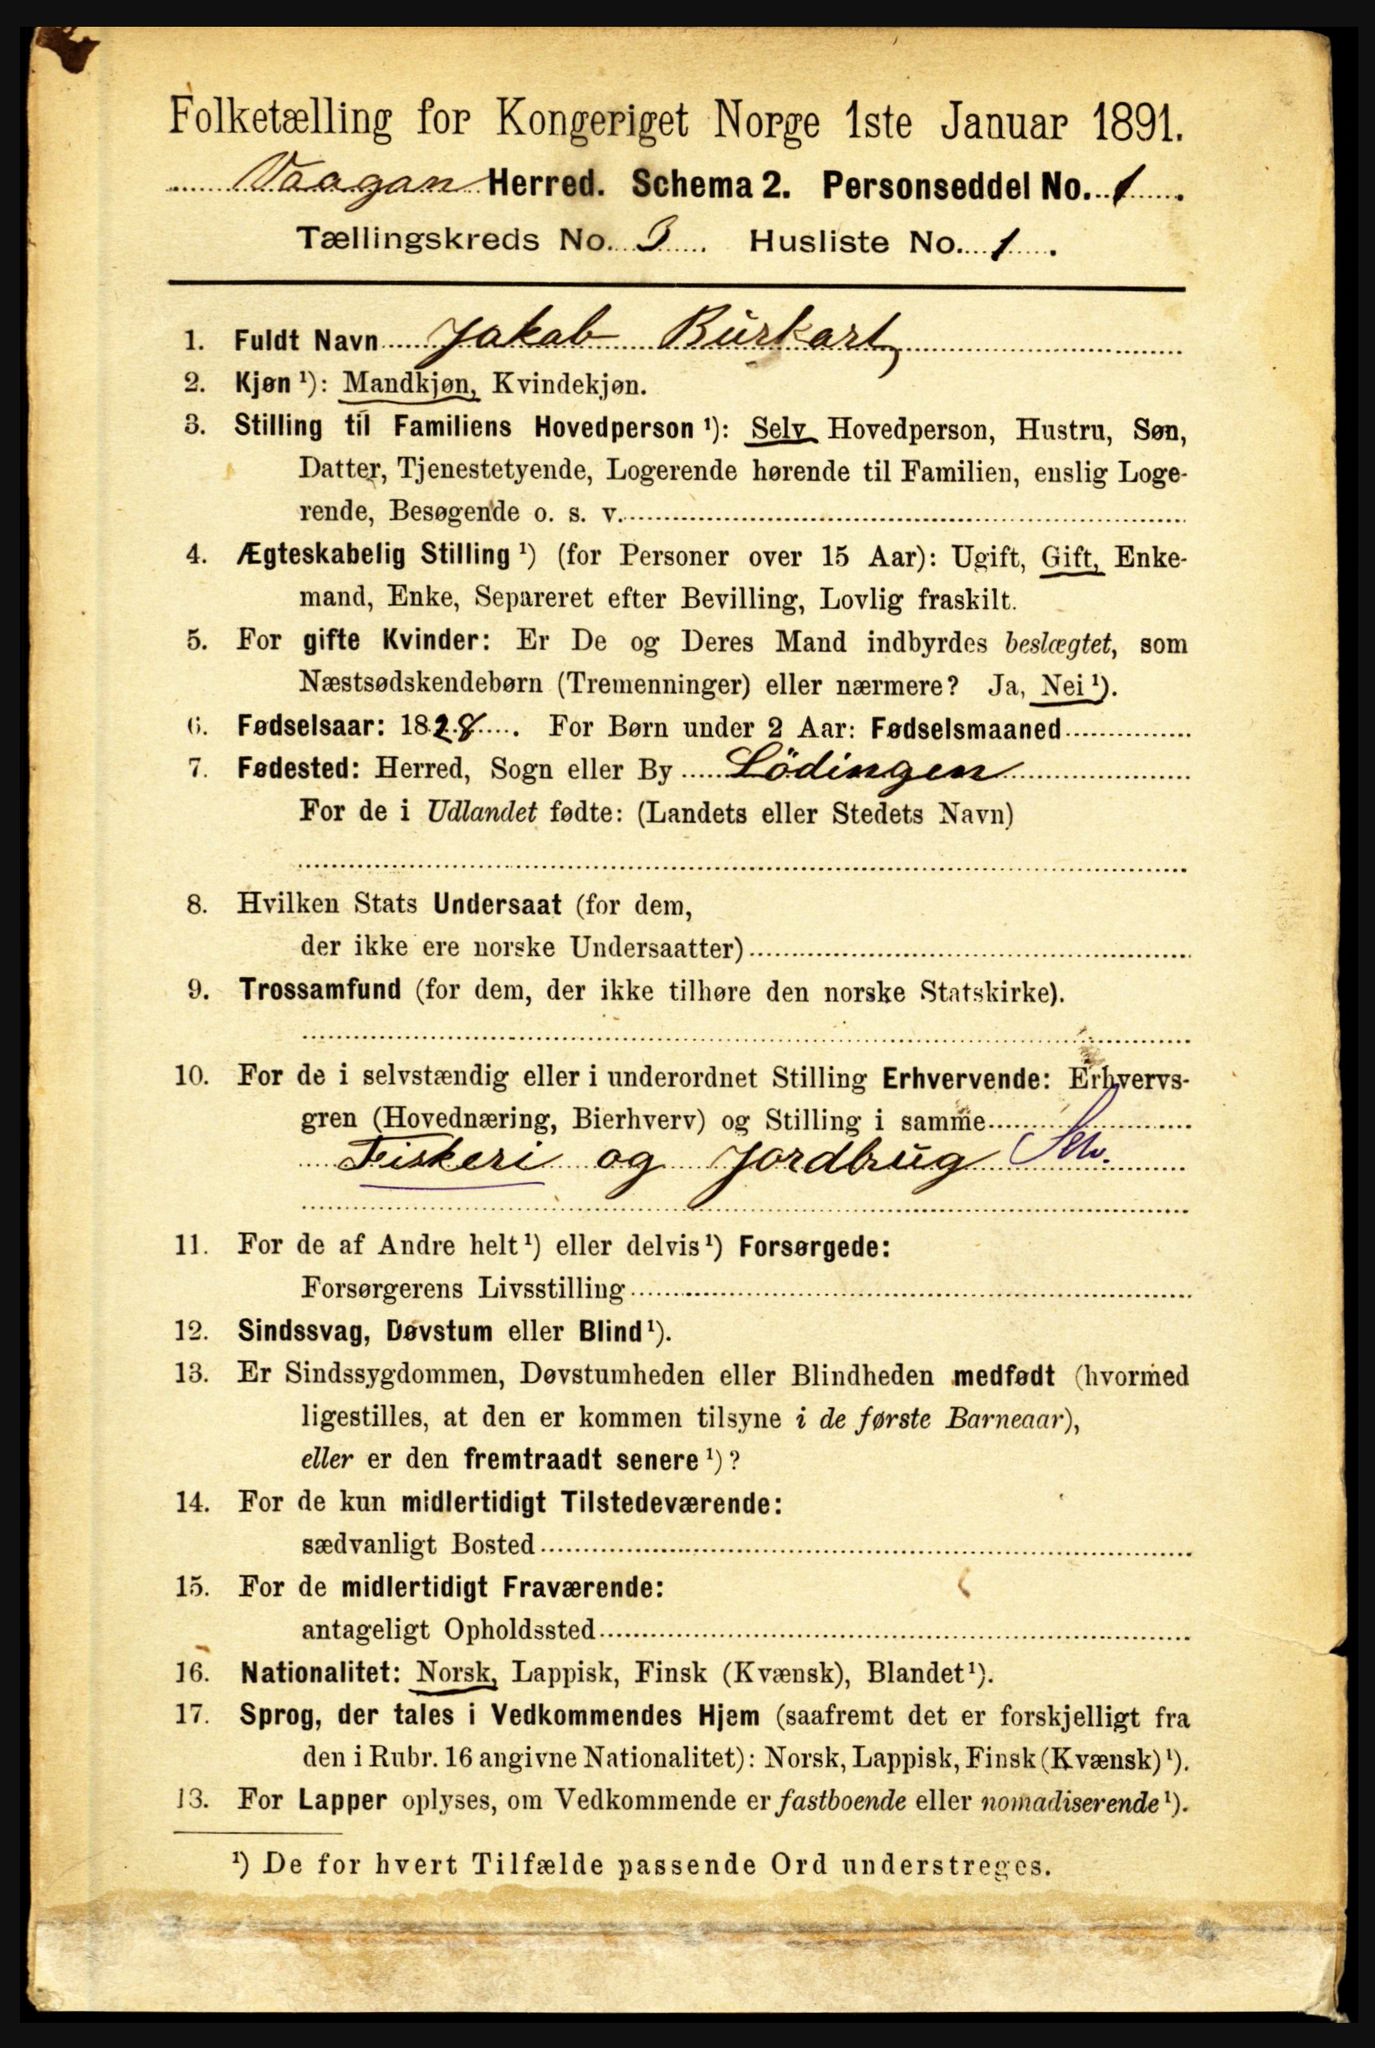 Folketælling for Kongeriget Norge 1ste Januar 1891.
Vaagan Herred. Schema 2. Personseddel No. 1.
Tællingskreds No. 3. Husliste No. 1.
1. Fuldt Navn Jakab Burkart
2. Kjøn ¹): Mandkjøn, Kvindekjøn.
3. Stilling til Familiens Hovedperson ¹): Selv Hovedperson, Hustru, Søn,
Datter, Tjenestetyende, Logerende hørende til Familien, enslig Loge-
rende, Besøgende o. s. v.
4. Ægteskabelig Stilling ¹) (for Personer over 15 Aar): Ugift, Gift, Enke-
mand, Enke, Separeret efter Bevilling, Lovlig fraskilt.
5. For gifte Kvinder: Er De og Deres Mand indbyrdes beslægtet, som
Næstsødskendebørn (Tremenninger) eller nærmere? Ja, Nei ¹).
6. Fødselsaar: 1828. For Børn under 2 Aar: Fødselsmaaned
7. Fødested: Herred, Sogn eller By Lödingen
For de i Udlandet fødte: (Landets eller Stedets Navn)
8. Hvilken Stats Undersaat (for dem,
der ikke ere norske Undersaatter)
9. Trossamfund (for dem, der ikke tilhøre den norske Statskirke).
10. For de i selvstændig eller i underordnet Stilling Erhvervende: Erhvervs-
gren (Hovednæring, Bierhverv) og Stilling i samme
Fiskeri og Jordbrug Selv.
11. For de af Andre helt ¹) eller delvis ¹) Forsørgede:
Forsørgerens Livsstilling
12. Sindssvag, Døvstum eller Blind ¹).
13. Er Sindssygdommen, Døvstumheden eller Blindheden medfødt (hvormed
ligestilles, at den er kommen tilsyne i de første Barneaar),
eller er den fremtraadt senere ¹)?
14. For de kun midlertidigt Tilstedeværende:
sædvanligt Bosted
15. For de midlertidigt Fraværende:
antageligt Opholdssted
16. Nationalitet: Norsk, Lappisk, Finsk (Kvænsk), Blandet ¹).
17. Sprog, der tales i Vedkommendes Hjem (saafremt det er forskjelligt fra
den i Rubr. 16 angivne Nationalitet): Norsk, Lappisk, Finsk (Kvænsk) ¹).
13. For Lapper oplyses, om Vedkommende er fastboende eller nomadiserende ¹).
¹) De for hvert Tilfælde passende Ord understreges.